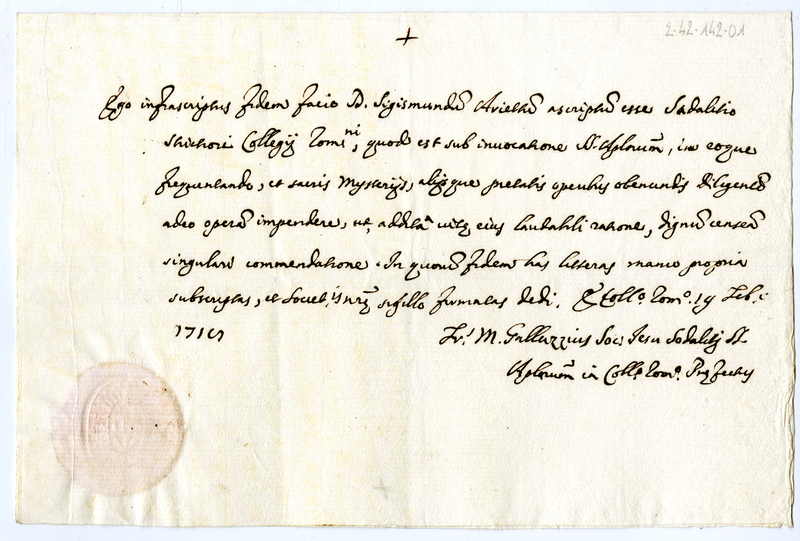 +
2-42-142-01
Ego infrascriptus fidem facio D. Sigismundũ ascriptũ esse Sodalitio
Collegij Romⁿⁱ, quod est sub invocatione SS. Aplorum̃, in eoque
frequentando, et sacris Mysterijs, alijsque pietatis operibus obeundis diligentẽ
adeo operã impendere, ut, addita vitę eius laudabili ratione, dignũ censeã
singulari commendatione. In quorũ fidem has litteras manu propria
subscriptas, et Societ.is nrę sigillo firmatas dedi. Ex Coll.o Rom.o 19 Feb.
171
Fr. M. Galluzzius Soc. Jesu Sodalitij SS.
Aplorum̃ in Coll.o Rom.o Pręfectus